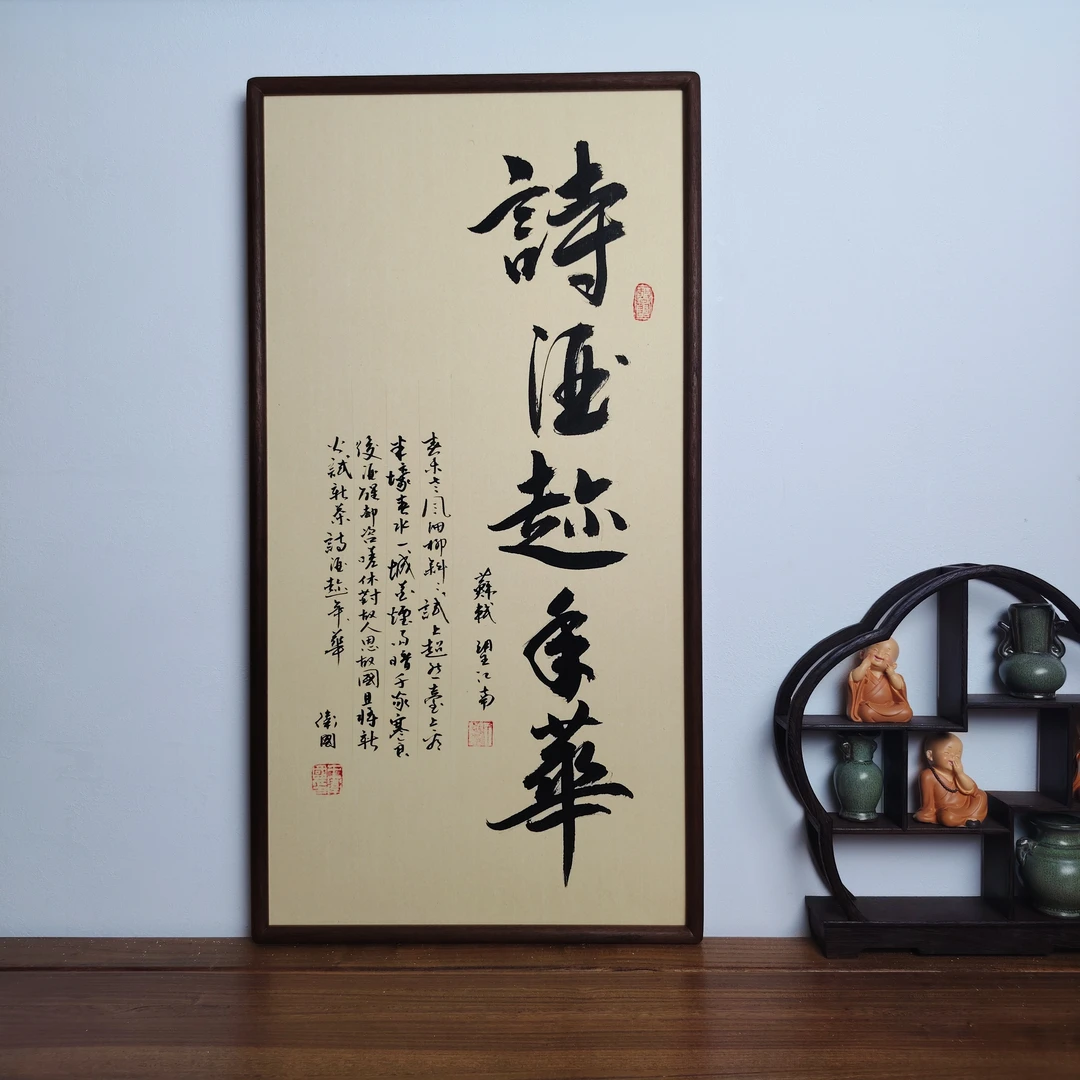 詩酒趂年華
蘇軾 望江南
春未老風細柳斜々試上超然臺上看
半壕春水一城花煙雨暗千家寒食
後酒醒却咨嗟休對故人思故國且將新
火試新茶詩酒趂年華
衛國